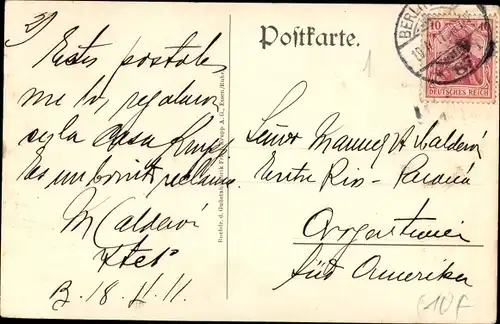 2)
Estas postales
me las regalaron
en la Casa Krupp
Es un bonito reclame.
M Calderón
B. 18. 4. 11.
Postkarte.
BERLIN
10 10
DEUTSCHES REICH
1
Señor Manuel A Calderón
Entre Rios - Paraná
Argentinien
Süd Amerika
10F